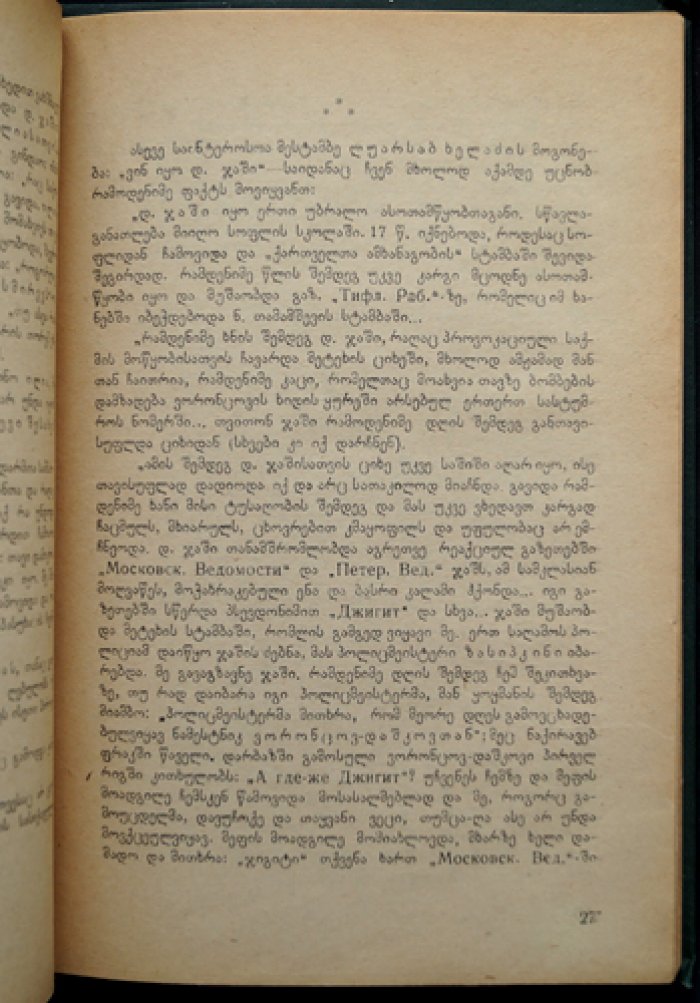 * * *
ასევე საინტეროსოა მესტამბე ლუარსაბ ხელაძის მოგონე-
ბა: „ვინ იყო დ. ჯაში“—საიდანაც ჩვენ მხოლოდ აქამდე უცნობ
რამოდენიმე ფაქტს მოვიყვანთ:
„დ. ჯაში იყო ერთი უბრალო ასოთამწყობთაგანი. სწავლა-
განათლება მიიღო სოფლის სკოლაში. 17 წ. იქნებოდა, როდესაც სო-
ფლიდან ჩამოვიდა და „ქართველთა ამხანაგობის“ სტამბაში შევიდა
შეგირდად. რამდენიმე წლის შემდეგ უკვე კარგი მცოდნე ასოთამ-
წყობი იყო და მუშაობდა გაზ. „Тифл. Раб.“-ზე, რომელიც იმ ხა-
ნებში იბეჭდებოდა ნ. თამამშევის სტამბაში...
„რამდენიმე ხნის შემდეგ დ. ჯაში, რაღაც პროვოკაციული საქ-
მის მოწყობისათვის ჩავარდა მეტეხის ციხეში, მხოლოდ ამჟამად მან
თან ჩაითრია, რამდენიმე კაცი, რომელთაც მოახვია თავზე ბომბების
დამზადება ვორონცოვის ხიდის ყურეში არსებულ ერთერთ სასტუმ-
როს ნომერში... თვითონ ჯაში რამოდენიმე დღის შემდეგ განთავი-
სუფლდა ციხიდან (სხვები კი იქ დარჩნენ).
„ამის შემდეგ დ. ჯაშისათვის ციხე უკვე საშიში აღარ იყო, ისე
თავისუფლად დადიოდა იქ და არც სათაკილოდ მიაჩნდა. გავიდა რამ-
დენიმე ხანი მისი ტუსაღობის შემდეგ და მას უკვე ვხედავთ კარგად
ჩაცმულს, მხიარულს, ცხოვრებით კმაყოფილს და უფულობაც არ ემ-
ჩნეოდა. დ. ჯაში თანამშრომლობდა აგრეთვე რეაქციულ გაზეთებში
„Московск. Ведомости“ და „Петер. Вед.“ ჯაშს, ამ სამკლასიან
მოღვაწეს, მოქარაკებული ენა და ბასრი კალამი ჰქონდა... იგი გა-
ზეთებში სწერდა ფსევდონიმით „Джигит“ და სხვა... ჯაში მუშაობ-
და მეტეხის სტამბაში, რომლის გამგედ ვიყავი მე. ერთ საღამოს პო-
ლიციამ დაიწყო ჯაშის ძებნა, მას პოლიცმეისტერი ზასიპკინი იბა-
რებდა. მე გავაგზავნე ჯაში. რამდენიმე დღის შემდეგ ჩემ შეკითხვა-
ზე, თუ რად დაიბარა იგი პოლიცმეისტერმა, მან ყოყმანის შემდეგ
მიამბო: „პოლიცმეისტერმა მითხრა, რომ მეორე დღეს გამოვცხადე-
ბულვიყავ ნამესტნიკ ვორონცოვ-დაშკოვთან“; მეც ნაქირავებ
ფრაკში წაველი. დარბაზში გამოსული ვორონცოვ-დაშკოვი პირველ
რიგში კითხულობს: „А где-же Джигит“? უჩვენეს ჩემზე და მეფის
მოადგილე ჩემსკენ წამოვიდა მოსასალმებლად და მე, როგორც გა-
მოუცდელმა, დავუჩოქე და თაყვანი ვეცი, თუმცა-ღა ასე არ უნდა
მოვქცეულვიყავ. მეფის მოადგილე მომიახლოვდა, მხარზე ხელი და-
მადო და მითხრა: „ჯიგიტი“ თქვენა ხართ „Московск. Вед.“-ში
27